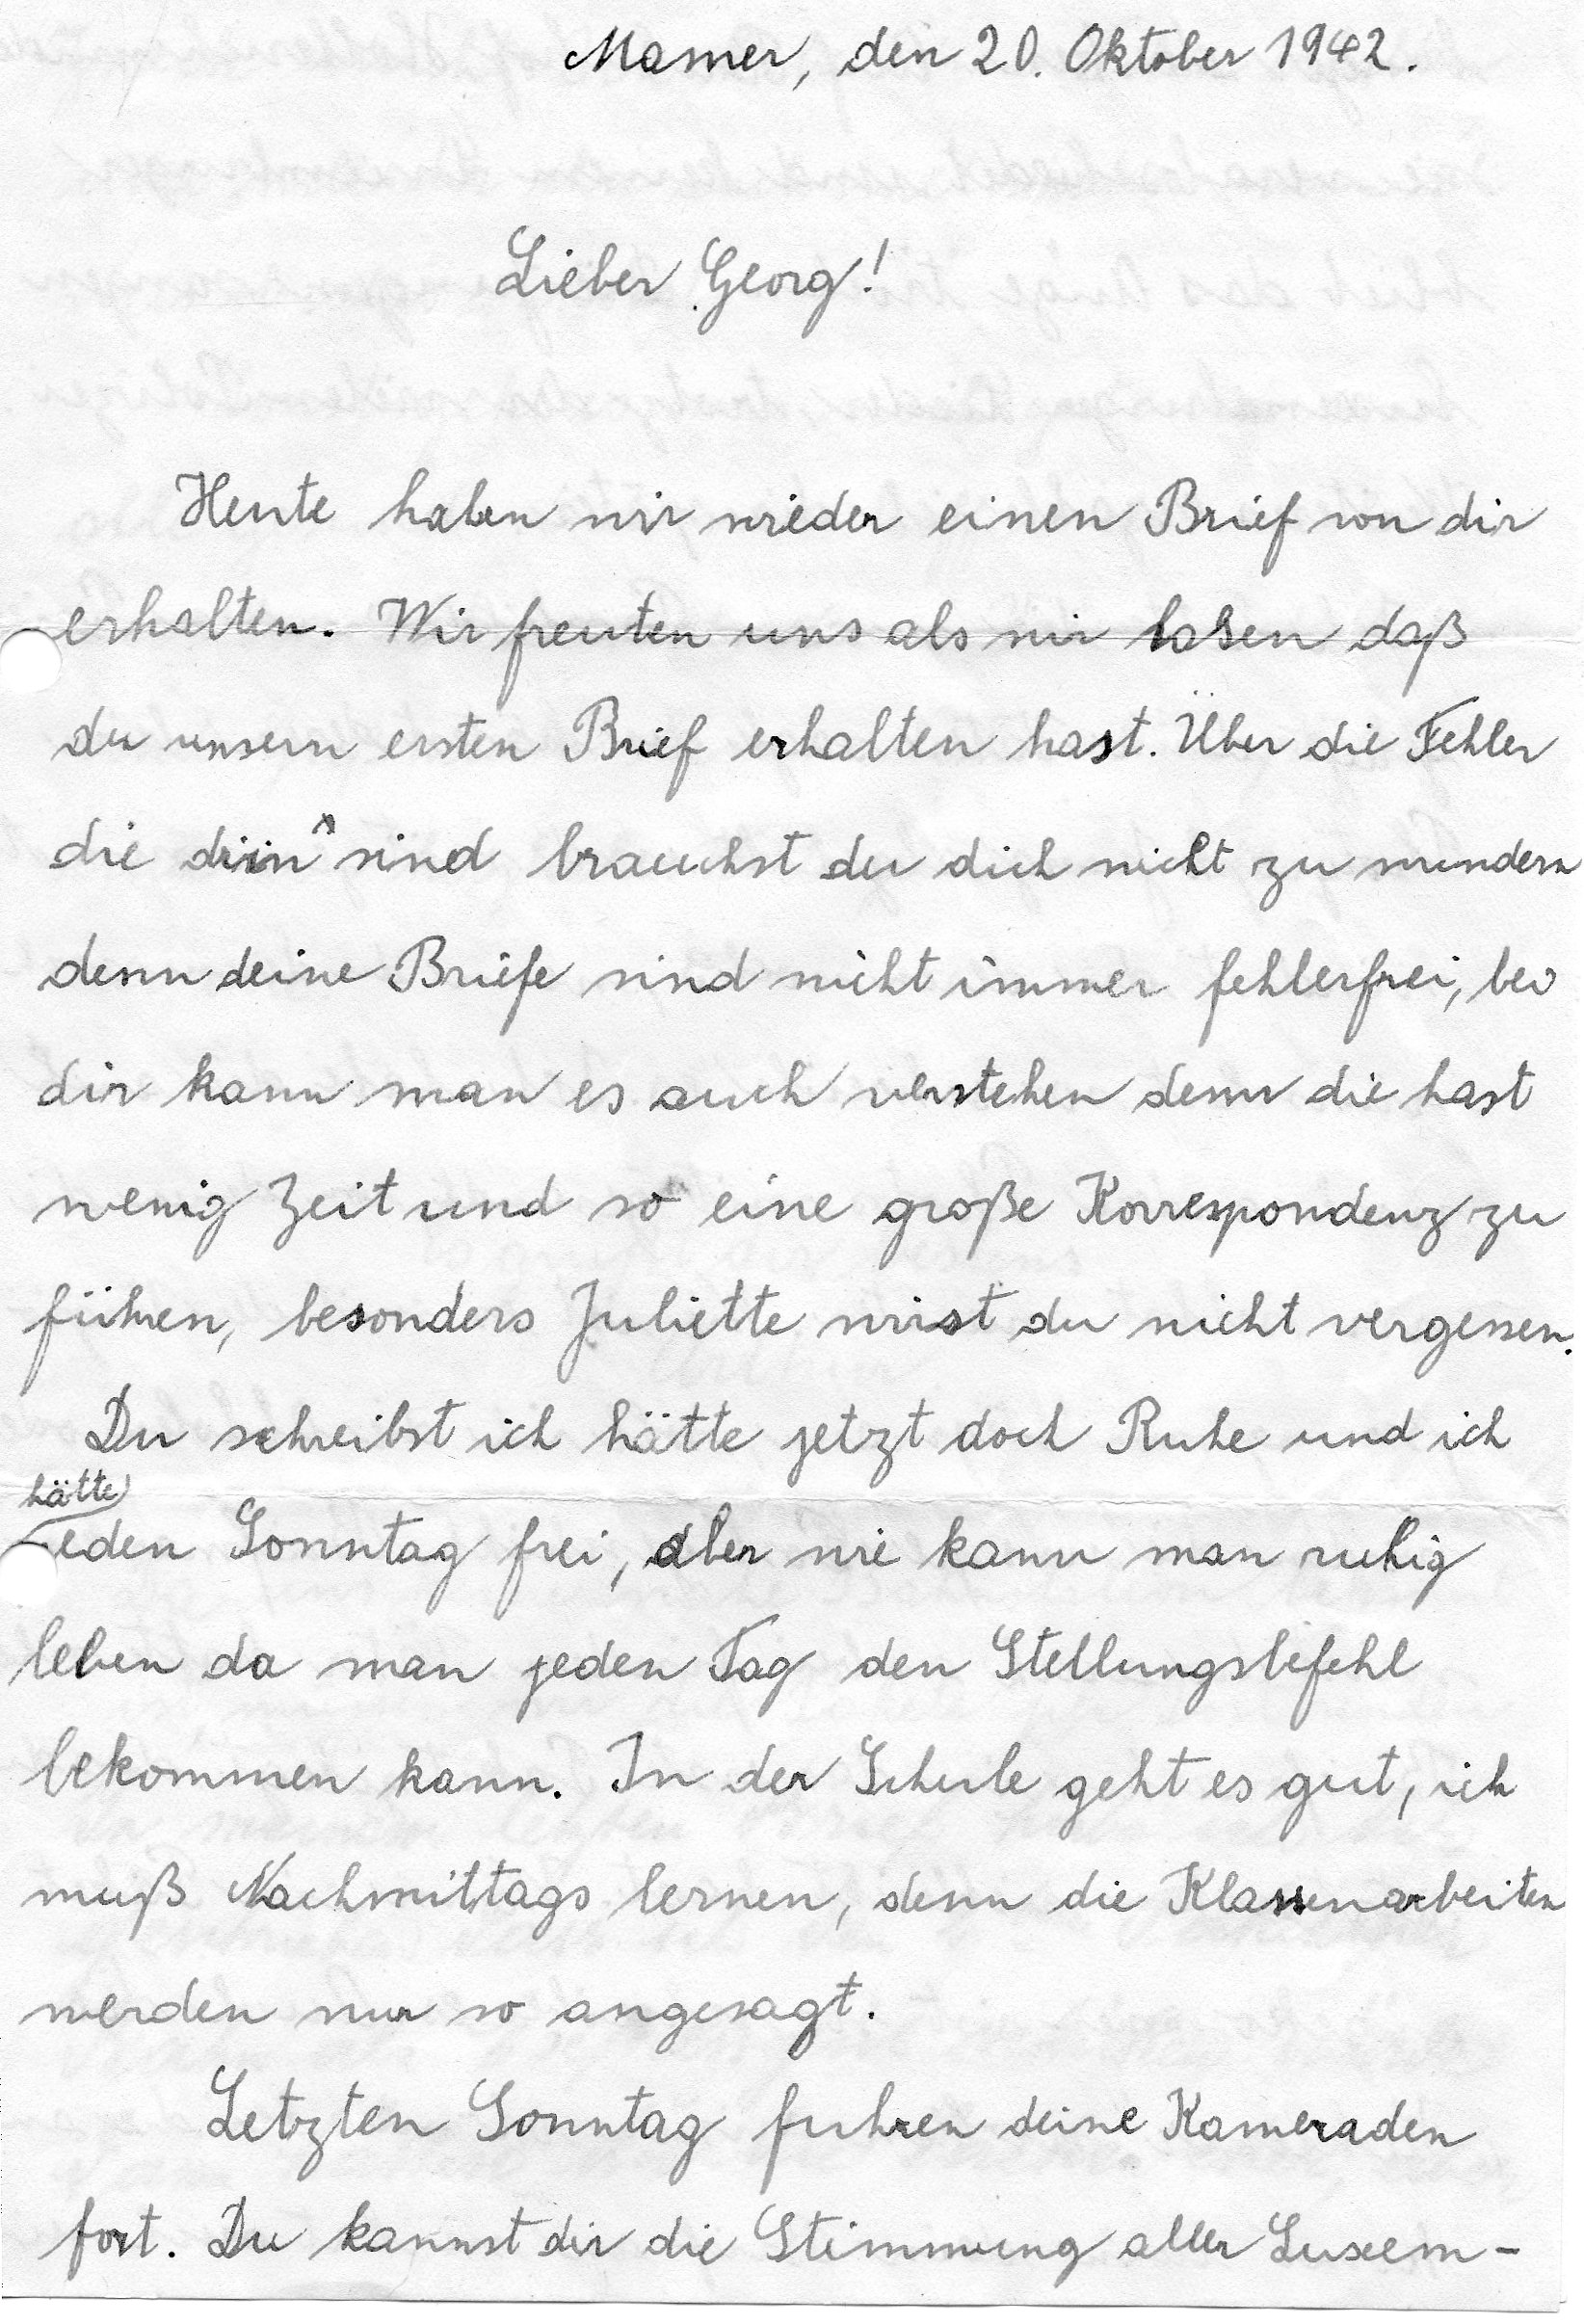 Mamer, den 20. Oktober 1942.
Lieber Georg!
Heute haben wir wieder einen Brief von dir
erhalten. Wir freuten uns als wir lasen daß
du unsern ersten Brief erhalten hast. Über die Fehler
die driin sind brauchst du dich nicht zu wundern
denn deine Briefe sind nicht immer fehlerfrei, bei
dir kann man es auch verstehen denn die hast
wenig Zeit und so eine große Korrespondenz zu
führen, besonders Juliette wirst du nicht vergessen.
Du schreibst ich hätte jetzt doch Ruhe und ich
hätte
jeden Sonntag frei, aber wie kann man ruhig
leben da man jeden Tag den Stellungsbefehl
bekommen kann. In der Schule geht es gut, ich
muß Nachmittags lernen, denn die Klassenarbeiten
werden nur so angesagt.
Letzten Sonntag fuhren deine Kameraden
fort. Du kannst dir die Stimmung aller Luxem-